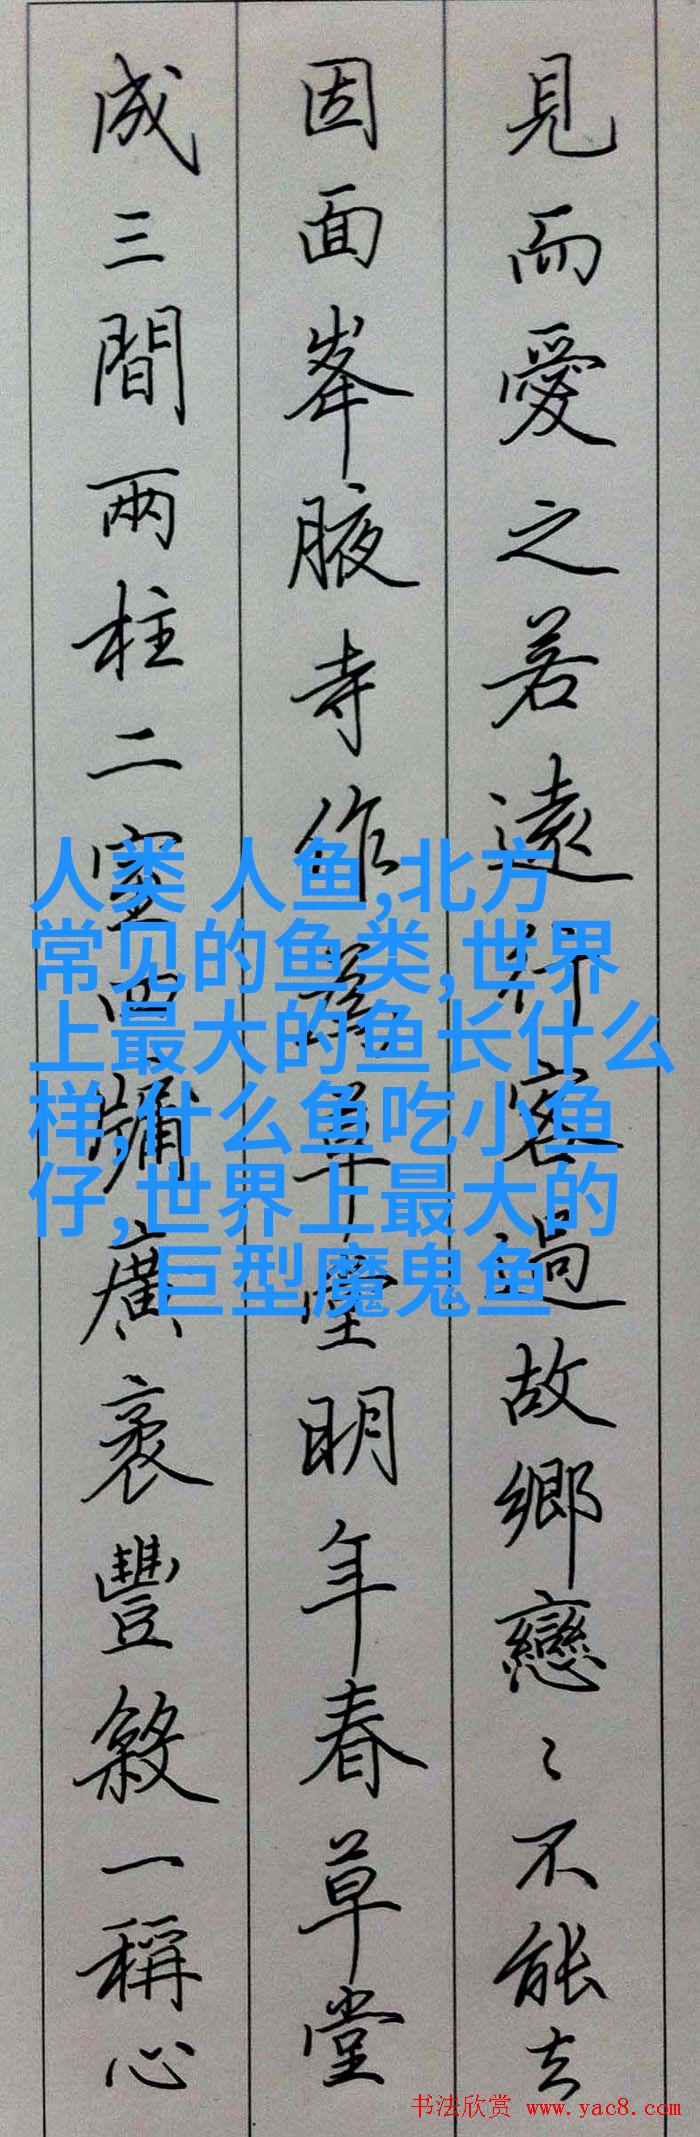 見而愛之若遠行客過故鄉戀〻不能去
因面峯腋寺作為草堂明年春草堂
成三間兩柱二室四牖廣袤豐殺一稱心
人类 人鱼,北方
常见的鱼类,世界
上最大的鱼长什么
样,什么鱼吃小鱼
仔,世界上最大的
巨型魔鬼鱼
书法欣赏 www.yac8.com